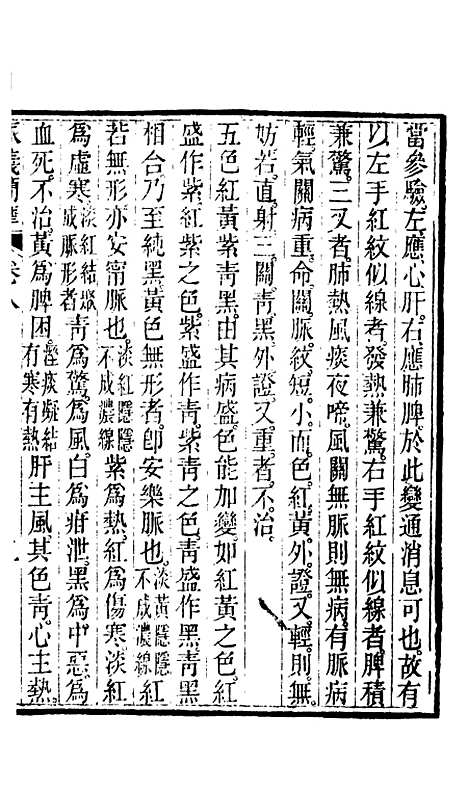 當參驗左應心肝右應肺脾於此變通消息可也故有
以左手紅紋似線者發熱兼驚右手紅紋似線者脾積
兼驚三叉者肺熱風痰夜啼風關無脈則無病有脈病
輕氣關病重命關脈紋短小而色紅黃外證又輕則無
妨若直射三關青黑外證又重者不治
五色紅黃紫青黑由其病盛色能加變如紅黃之色紅
盛作紫紅紫之色紫盛作青紫青之色青盛作黑青黑
相合乃至純黑黃色無形者卽安樂脈也淡黃隱隱不成濃線紅
若無形亦安甯脈也淡紅隱隱不成濃線紫爲熱紅爲傷寒淡紅
爲虛寒淡紅結聚成脈形者青爲驚爲風白爲疳泄黑爲中惡爲
血死不治黃爲脾困溼痰凝結有寒有熱肝主風其色青心主熱
脈義簡摩 卷八